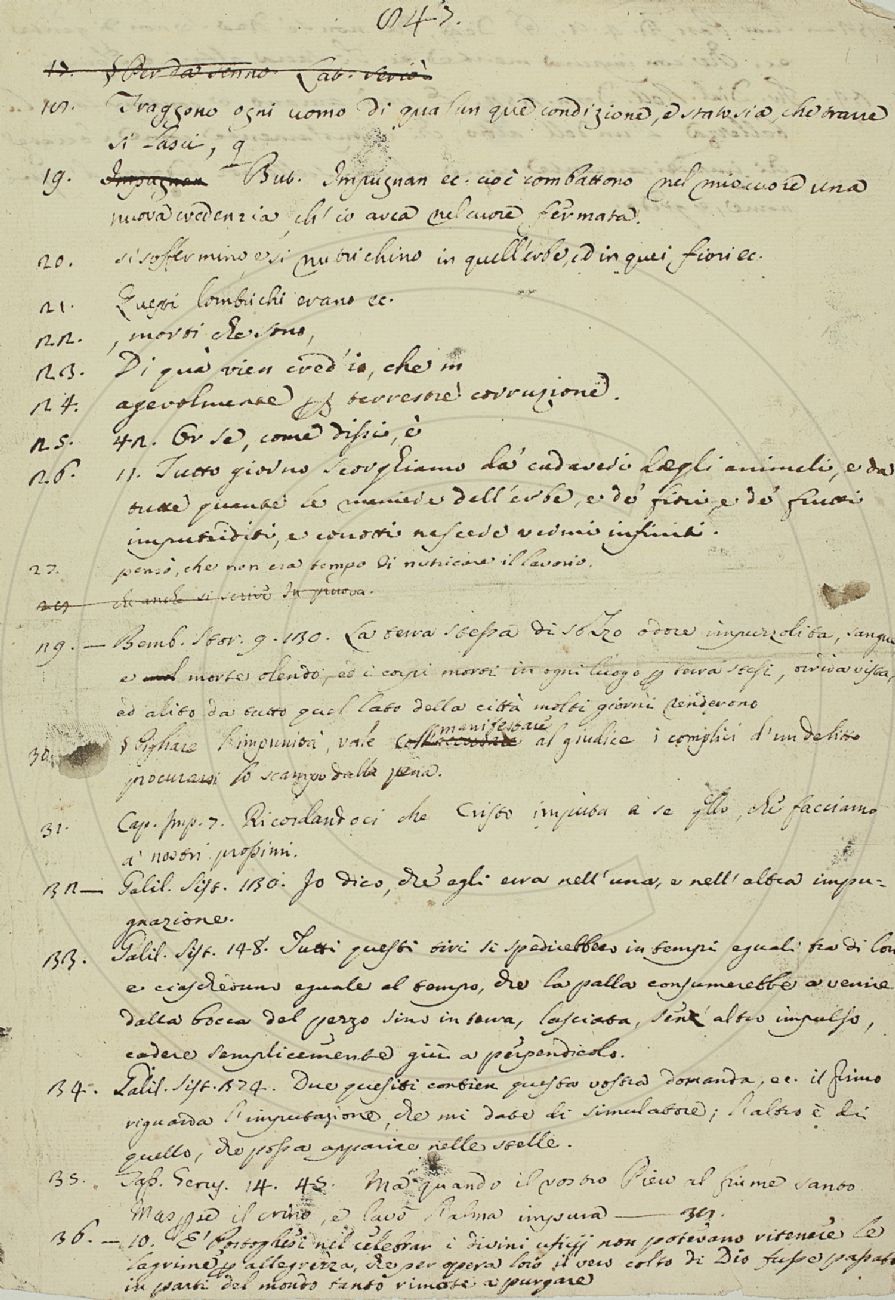 847.
17. § Per da senno. Lab. serio
18. Traggono ogni uomo di qualunque condizione, e stato sia, che trarre
si lasci,
19. Impugnan Bub. Impugnan ec. cioè combattono nel mio cuore una
nuova credenzia, ch'io avea nel cuore fermata.
20. si soffermino e si nutrichino in quell'erbe, ed in quei fiori ec.
21. Questi lombrichi erano ec.
22. , morti che sono,
23. Di quà vien cred'io, che in
24. agevolmente terrestre corruzione.
25. 42. Or se, come dissi, è
26. 11. Tutto giorno scorghiamo da' cadaveri degli animali, e da
tutte quante le maniere dell'erbe, e de' fiori, e de' frutti
imputriditi, e corrotti nascere vermi infiniti.
27. pensò, che non era tempo di nutricare il lavorio.
che anche si scrive In pruova.
29. — Bemb. Stor. 9. 130. La terra stessa di sozzo odore impuzzolita, sangue
e morte olendo, ed i corpi morti in ogni luogo p terra stesi, orrida vista,
ed alito da tutto quel lato della città molti giorni renderono
30. § Pigliare l'impunità, vale manifestare al giudice i complici d'un delitto
procurarsi lo scampo dalla pena.
31. Cap. Imp. 7. Ricordandoci che Cristo imputa a se qllo, che facciamo
a' nostri prossimi.
32 — Galil. Sist. 130. Io dico, che egli erra nell'una, e nell'altra impu=
gnazione.
33. Galil. Sist. 148. Tutti questi tiri si spedirebbero in tempi eguali tra di loro
e ciascheduno eguale al tempo, che la palla consumerebbe a venire
dalla bocca del pezzo sino in terra, lasciata, senz'altro impulso,
cadere semplicemente giù a perpendicolo.
34. Galil. Sist. 324. Due quesiti contien questa vostra domanda, ec. il primo
riguarda l'imputazione, che mi date di simulatore; l'altro è di
quello, che possa apparire nelle stelle.
35. Tass. Gerus. 14. 45. Ma quando il vostro Piero al fiume santo
M'asperse il crine, e lavò l'alma impura —
36. — 10. E' Portoghesi nel celebrar i divini ufizj non potevano ritenere le
lagrime p allegrezza, che per opera loro il vero colto di Dio fusse passato
in parti del mondo tanto rimote a purgare